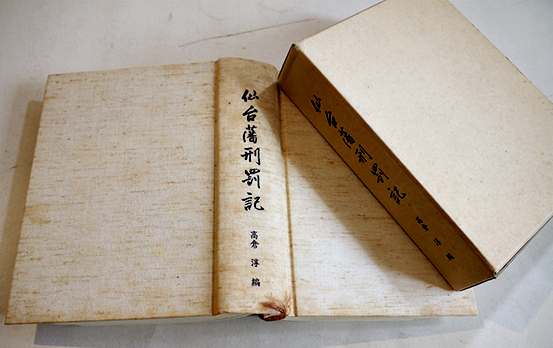 仙台藩刑罰記
高倉 淳 編
仙台藩刑罰記
高倉 淳 編